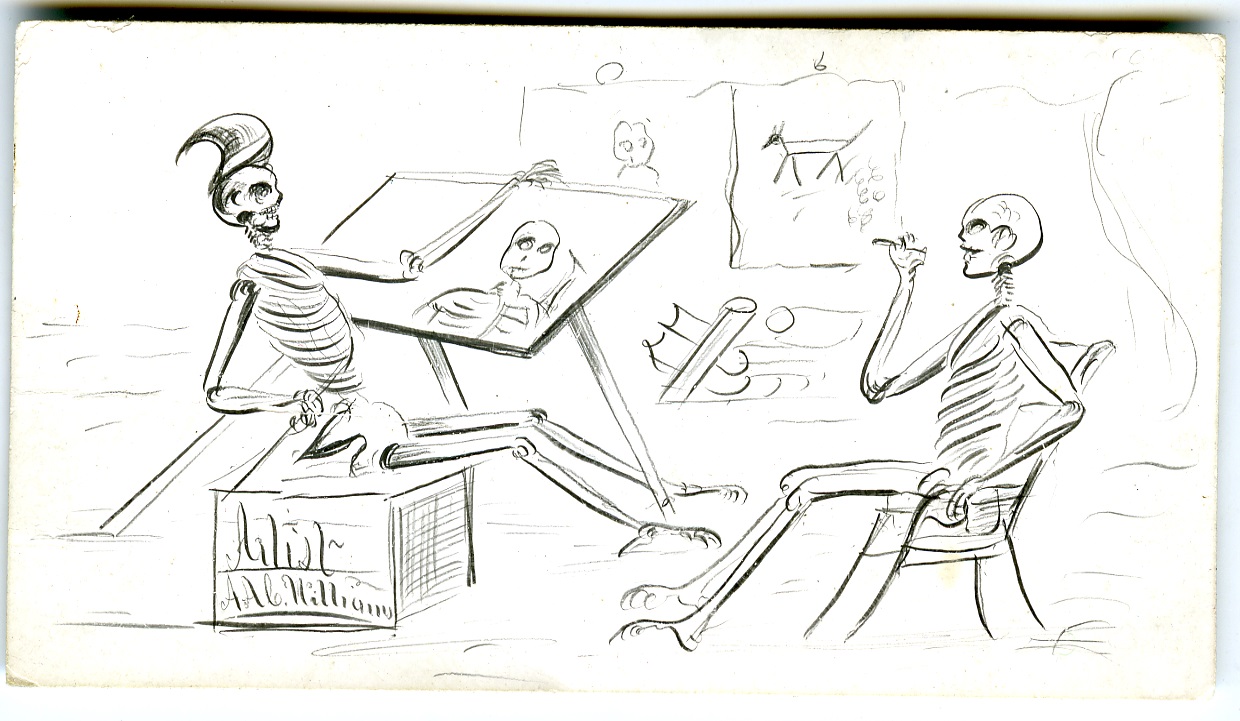 Artist
A. A. C. Williams